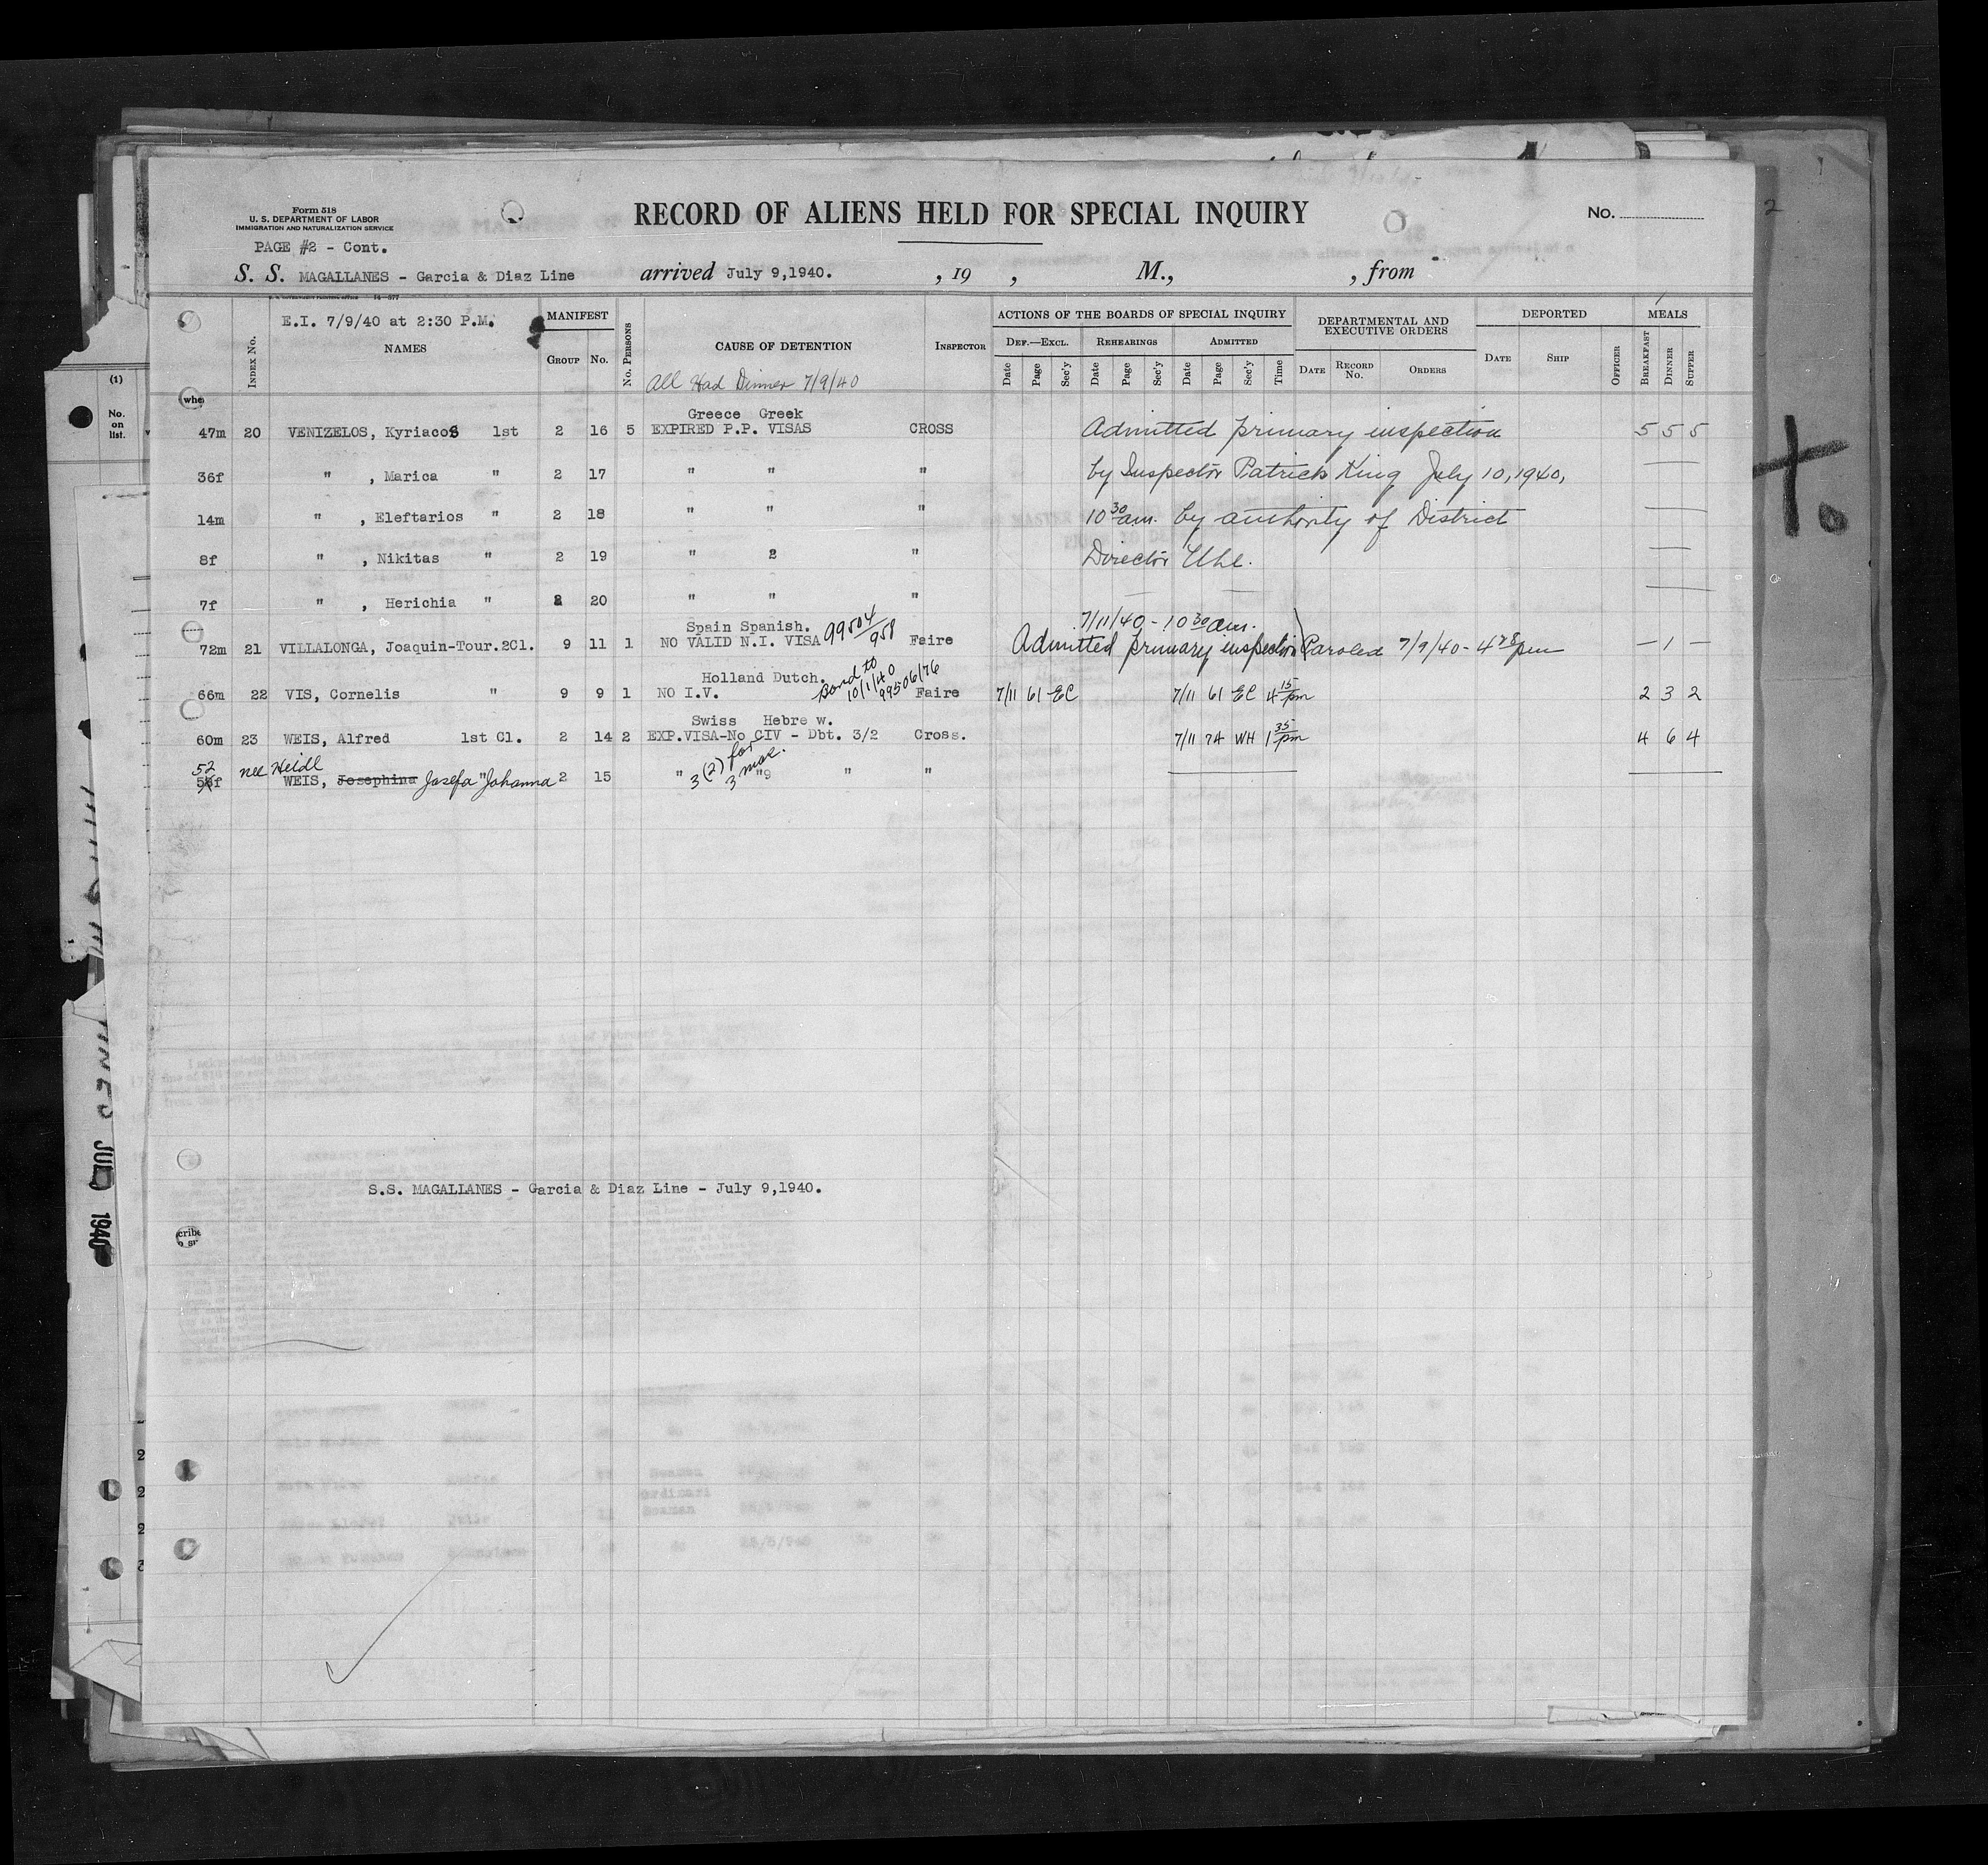 Form 518
U. S. DEPARTMENT OF LABOR
IMMIGRATION AND NATURALIZATION SERVICE
RECORD OF ALIENS HELD FOR SPECIAL INQUIRY
No.
2
PAGE #2 - Cont.
S. S. MAGALLANES - Garcia & Diaz Line arrived July 9,1940. , 19 , M., , from
E.I. 7/9/40 at 2:30 P.M.
Index No. NAMES MANIFEST Group No. No. Persons CAUSE OF DETENTION Inspector
ACTIONS OF THE BOARDS OF SPECIAL INQUIRY
Def.—Excl. Rehearings Admitted
Date Page Sec'y Date Page Sec'y Date Page Sec'y Time
DEPARTMENTAL AND EXECUTIVE ORDERS
Date Record No. Orders
DEPORTED
Date Ship Officer
MEALS
Breakfast Dinner Supper
All Had Dinner 7/9/40
Greece Greek
47m 20 VENIZELOS, Kyriacos 1st 2 16 5 EXPIRED P.P. VISAS CROSS Admitted primary inspection 5 5 5
36f " , Marica " 2 17 " " " by Inspector Patrick King July 10, 1940, —
14m " , Eleftarios " 2 18 " " " 10 30 am. by authority of District —
8f " , Nikitas " 2 19 " 2 " Director Uhl. —
7f " , Herichia " 2 20 " " " —
Spain Spanish. 99504/958 7/11/40 - 10 30 am.
72m 21 VILLALONGA, Joaquin-Tour.2Cl. 9 11 1 NO VALID N.I. VISA Faire Admitted primary inspection Paroled 7/9/40 - 4 28 pm — 1 —
Holland Dutch. Bond to 10/1/40 99506/76
66m 22 VIS, Cornelis " 9 9 1 NO I.V. Faire 7/11 61 EC 7/11 61 EC 4 15 pm 2 3 2
Swiss Hebre w.
60m 23 WEIS, Alfred 1st Cl. 2 14 2 EXP.VISA-No CIV - Dbt. 3/2 Cross. 7/11 74 WH 1 35 pm 4 6 4
52 nee Heidl 3(2) for 3 mos.
f WEIS, Josephina Josefa "Johanna 2 15 " "9 " "
S.S. MAGALLANES - Garcia & Diaz Line - July 9,1940.
(1)
No.
on
list.
whe
JUL 1940